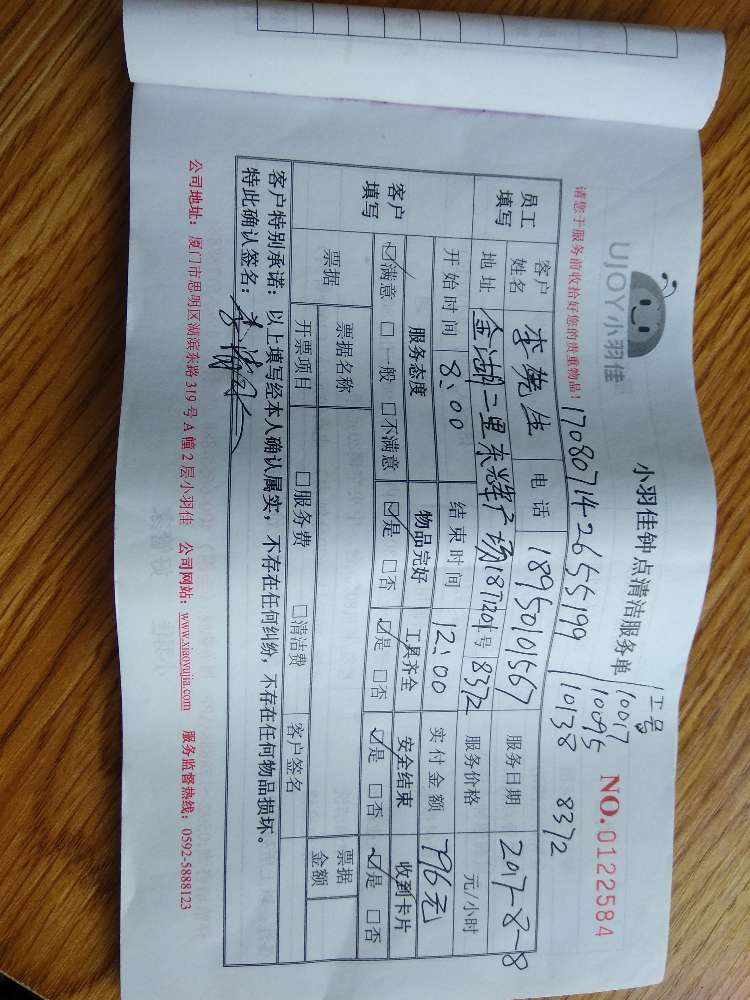 UJOY小羽佳
小羽佳钟点清洁服务单
工号
10017
10095
10138 8372
NO.0122584
请您于服务前收拾好您的贵重物品!
170807142655199
员工填写 客户姓名 李先生 电话 18950101567 服务日期 2017-8-8
地址 金湖二里东辉广场 8372 服务价格 元/小时
开始时间 8:00 结束时间 12:00 实付金额 796元
客户填写 服务态度 物品完好 工具齐全 安全结束 收到卡片
☑满意 □一般 □不满意 ☑是 □否 ☑是 □否 ☑是 □否 ☑是 □否
票据 票据名称 客户签名 票据金额
开票项目 □服务费 □清洁费
客户特别承诺:以上填写经本人确认属实,不存在任何纠纷,不存在任何物品损坏。
特此确认签名:
公司地址:厦门市思明区湖滨东路319号A幢2层小羽佳 公司网站:www.xiaoyujia.com 服务监督热线:0592-5888123